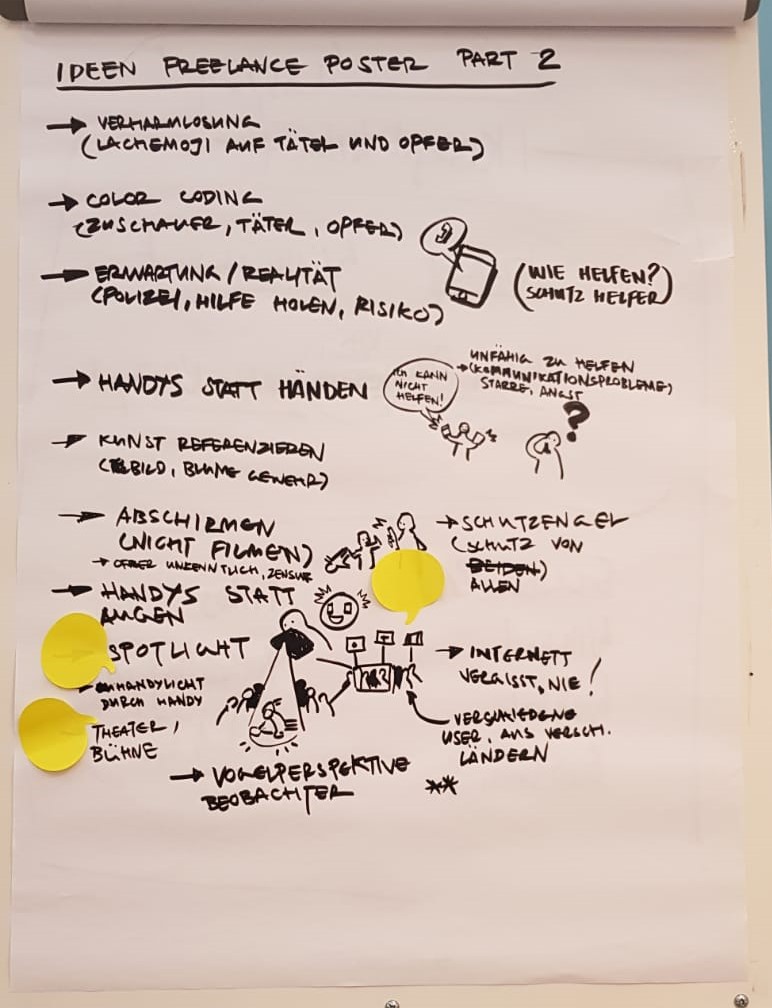 IDEEN FREELANCE POSTER PART 2
→ VERHARMLOSUNG
(LACHEMOJI AUF TÄTER UND OPFER)
→ COLOR CODING
(ZUSCHAUER, TÄTER, OPFER)
→ ERWARTUNG / REALITÄT
(POLIZEI, HILFE HOLEN, RISIKO)
(WIE HELFEN?
SCHUTZ HELFER)
→ HANDYS STATT HÄNDEN
ICH KANN
NICHT
HELFEN!
UNFÄHIG ZU HELFEN
→ (KOMMUNIKATIONSPROBLEME)
STARRE, ANGST
?
→ KUNST REFERENZIEREN
BILD, BLUME GEWEHR)
→ ABSCHIRMEN
(NICHT FILMEN)
→ OPFER UNKENNTLICH, ZENSUR
→ SCHUTZENGEL
(SCHUTZ VON
BEIDEN)
ALLEN
→ HANDYS STATT
AUGEN
SPOTLICHT
HANDYLICHT
DURCH HANDY
THEATER /
BÜHNE
→ INTERNETT
VERGISST, NIE!
VERSCHIEDENE
USER, AUS VERSCH.
LÄNDERN
→ VOGELPERSPEKTIVE
BEOBACHTER
**